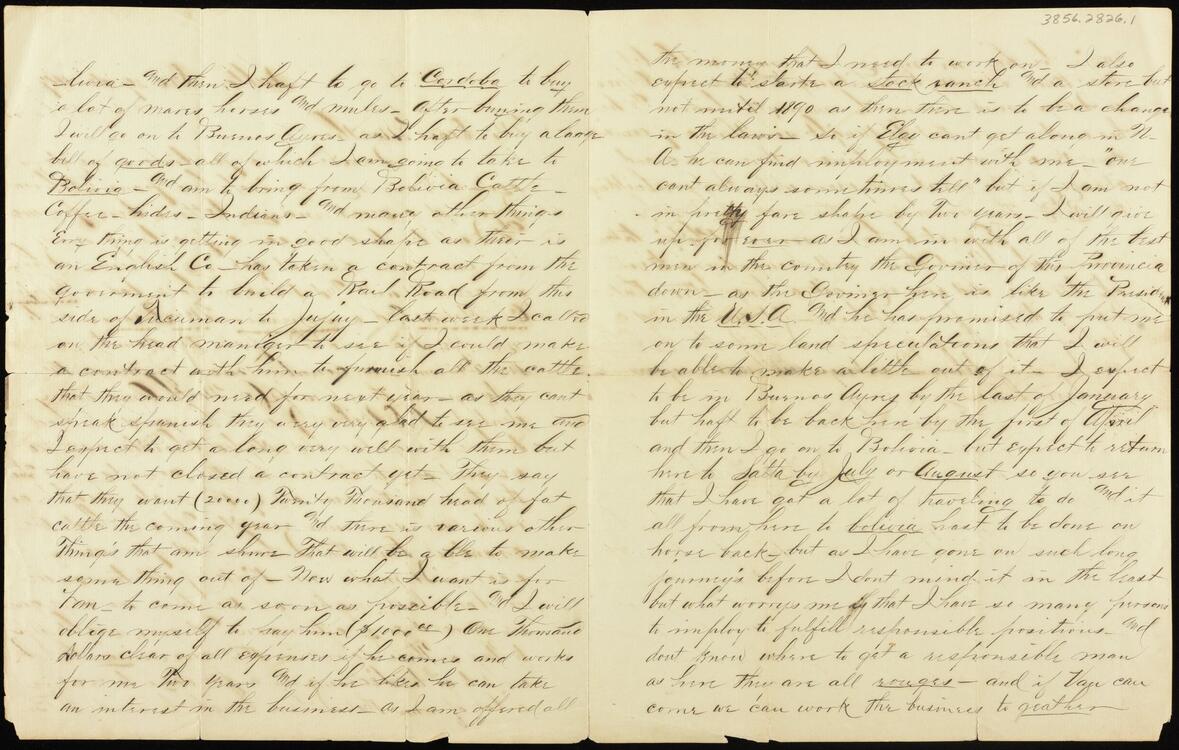 3856.2826.1
-livia - And then I haft to go to Cordoba to buy
a lot of mares horses And mules - after buying them
I will go on to Buenos Ayres - as I haft to buy a large
bill of goods - all of which I am going to take to
Bolivia - And am to bring from Bolivia Cattle -
Coffee - hides - Indians - And many other things
Erry thing is getting in good shape as their is
an English Co - has taken a contract from the
goverment to build a Rail Road from this
side of Tucuman to Jujuy - last week I called
on the head manager to see if I could make
a contract with him to furnish all the cattle
that they would need for next year - as they cant
speak spanish they wery very glad to see me And
I expect to get a long very well with them but
have not closed a contract yet - They say
that they want (20000) Twenty Thousand head of fat
cattle the coming year And there is various other
Thing's that am shure That will be able to make
some thing out of - Now what I want is for
Tau - to come as soon as possible - And I will
oblige myself to pay him ($1000.00) One Thousand
Dollars clear of all expenses if he comes and works
for me Two years And if he likes he can take
an interest in the business as I am offered all
the money that I need to work on - I also
expect to starte a stock ranch And a store but
not untill 1890 as then there is to be a change
in the laws - so if Elas cant get along in N-
A. he can find imployment with me - "one
cant always sometimes tell" but if I am not
in pretty fare shape by Two years - I will give
up for ever - as I am in with all of the best
men in the country the Goviner of this Provincia
down - as the Goviner here is like the President
in the U.S.A. And he has promised to put me
on to some land speculations that I will
be able to make a little out of it - I expect
to be in Buenos Ayres by the last of January
but haft to be back here by the first of April
and then I go on to Bolivia - but expect to return
here to Salta by July or August so you see
that I have got a lot of traveling to do And it
all from here to bolivia hast to be done on
horse back - but as I have gone on such long
journey's before I dont mind it in the least
but what worrys me is that I have so many persons
to imploy to fulfill responsible positions - And
dont know where to get a responsible man
as here they are all rouges - and if Tau can
come we can work the business to geather